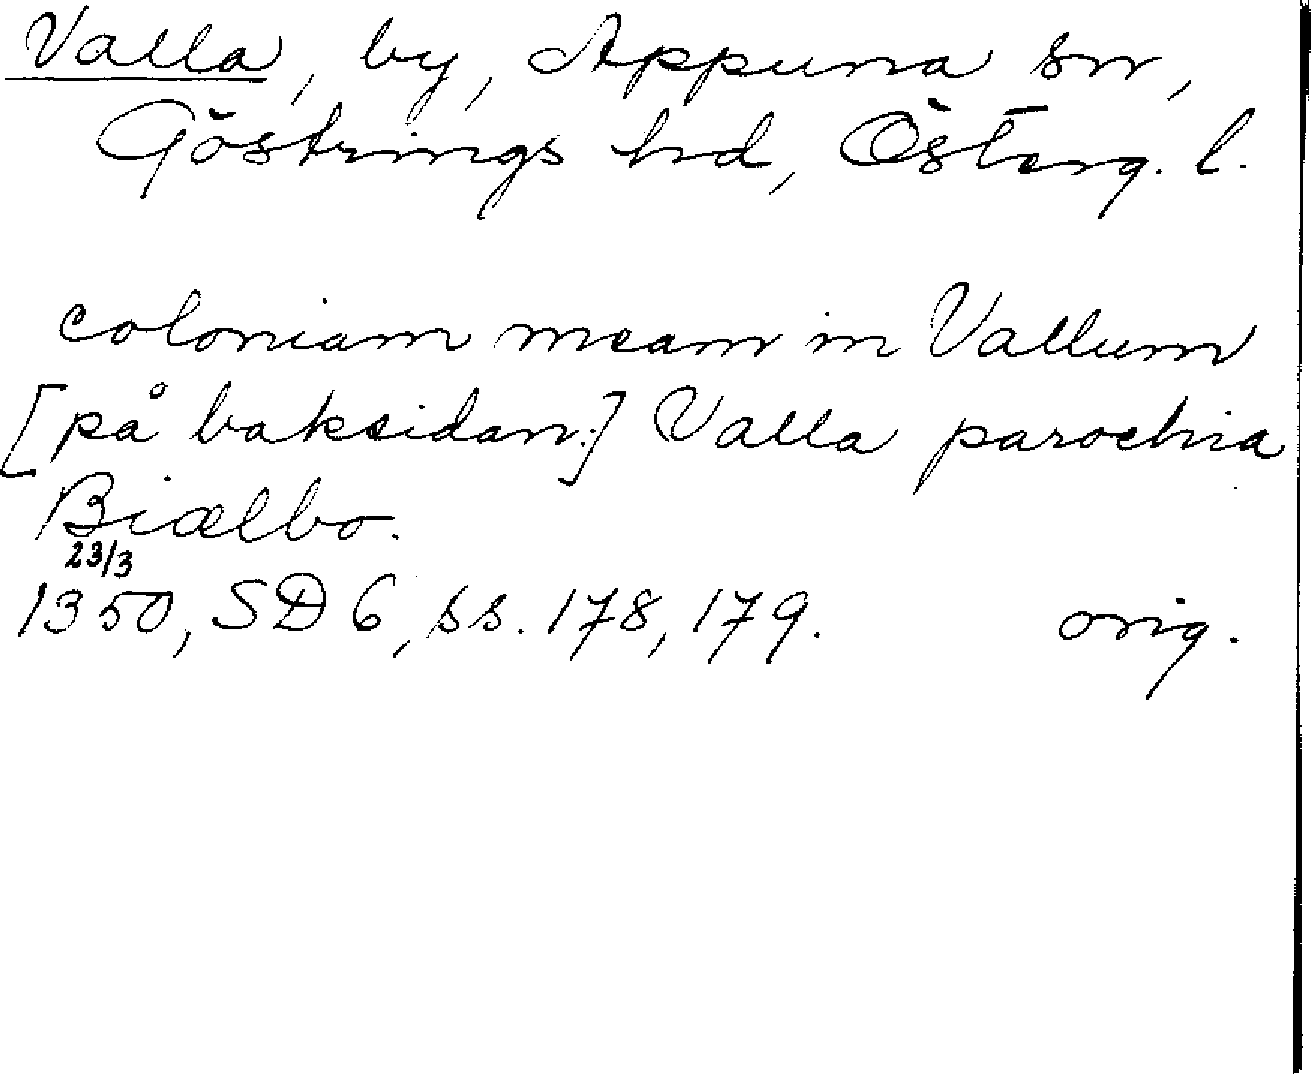 Valla, by, Appuna sn,
Göstrings hd, Österg. l.
coloniam meam in Vallum
[på baksidan:] Valla parochia
Biælbo.
23/3
1350, SD 6, ss. 178, 179. orig.